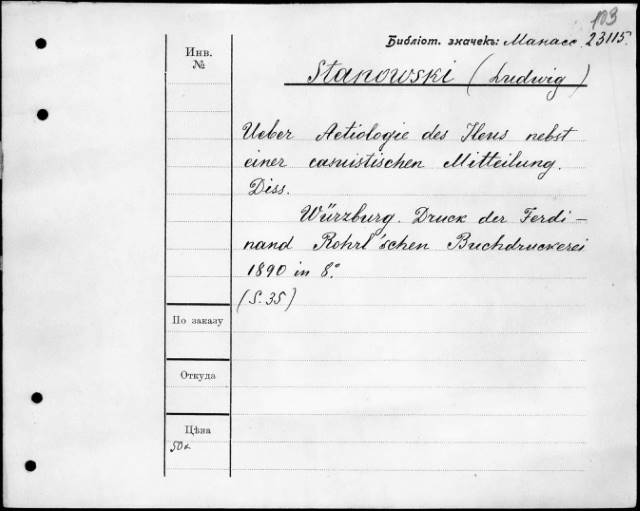 103
Библіот. значекъ: Манасс. 23115.
Инв.
№
Stanowski (Ludwig)
Ueber Aetiologie des Ileus nebst
einer casuistischen Mitteilung.
Diss.
Würzburg. Druck der Ferdi-
nand Rohrl'schen Buchdruckerei
1890 in 8°.
(S. 35)
По заказу
Откуда
Цѣна
50к